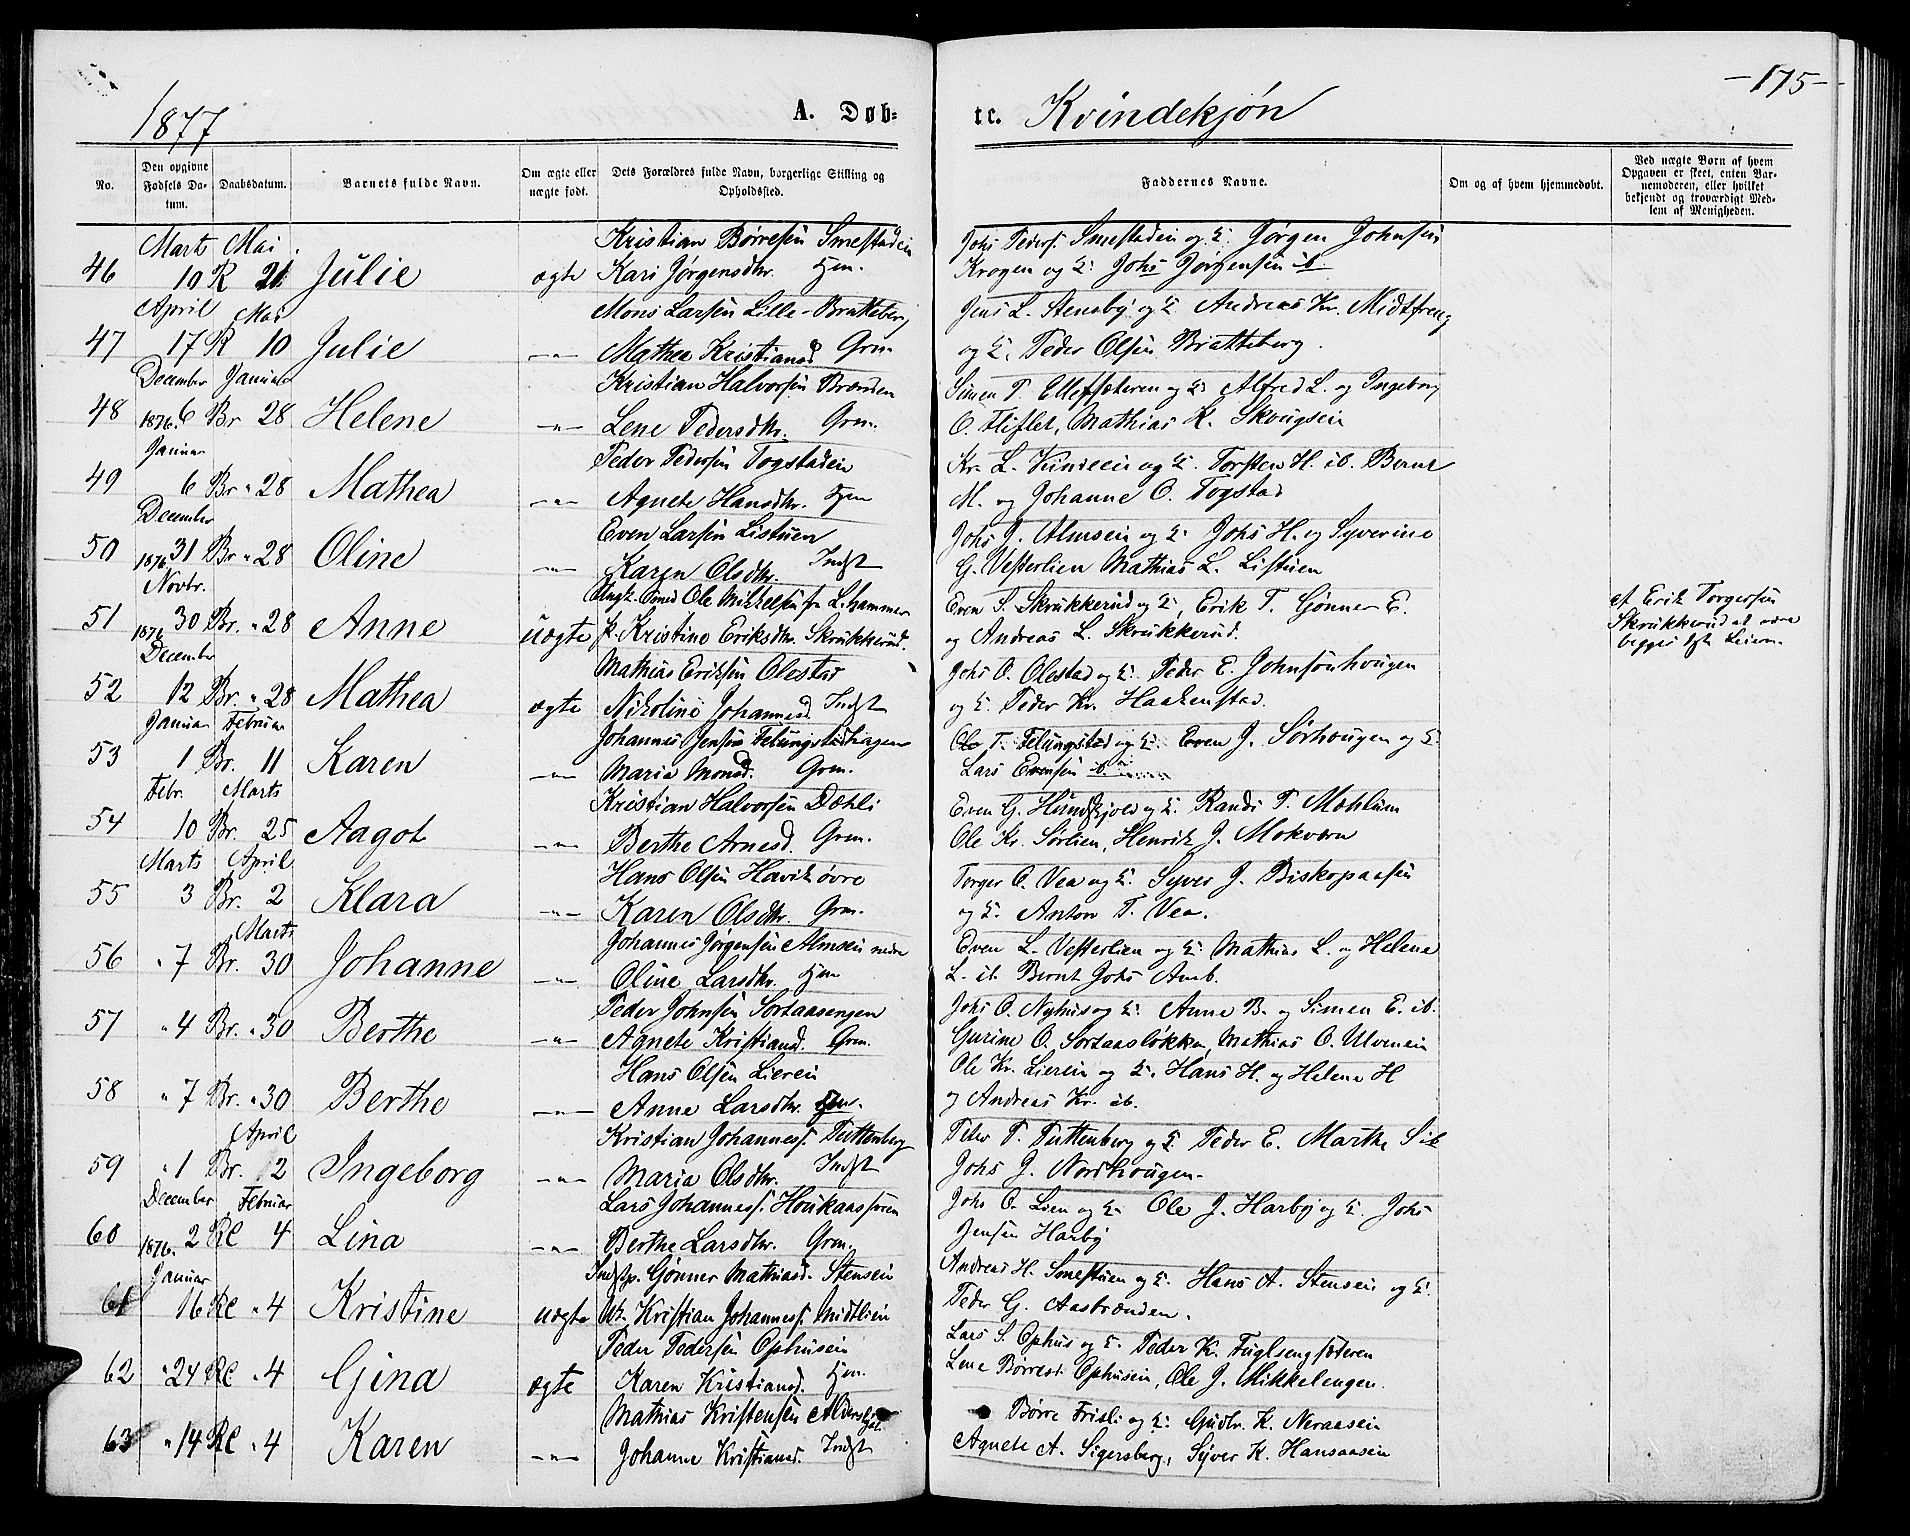 -175-
1877 A. Døb- te. Kvindekjøn
No. Den opgivne Fødsels Datum. Daabsdatum. Barnets fulde Navn. Om ægte eller uægte født. Dets Forældres fulde Navn, borgerlige Stilling og Opholdssted. Faddernes Navne. Om og af hvem hjemmedøbt. Ved uægte Børn af hvem Opgaven er skeet, enten Barnemoderen, eller hvilket bekjendt og troværdigt Medlem af Menigheden.
Marts Mai Kristian Børresen Smestadein Johs Peders. Smestadein og E. Jørgen Johnsen
46 19 R 21 Julie ægte Kari Jørgensdtr. Hjm. Krogen og E. Johs Jørgensen ib.
April Mai Mons Larsen Lille-Bratteberg Jens L. Stensby og E Andreas Kr. Midtfreng
47 17 R 10 Julie -"- Mathea Kristiansd Grm. og E. Peder Olsen Bratteberg.
December Januar Kristian Halvorsen Brænden Simen P. Ellefsæteren og E. Alfred L. og Ingeborg
48 1876. 6 Br 28 Helene -"- Lene Pedersdtr. Grm. O. Fliflet, Mathias K. Skougsein
Januar Peder Pedersen Togstadein Kr. L. og E. Torsten H. ib. Bernt
49 6 Br " 28 Mathea -"- Agnete Hansdtr. Hjm M. og Johanne O. Togstad
December Even Larsen Listuen Johs J. Almsein og E. Johs H. og Syverine
50 1876 31 Br " 28 Oline -"- Karen Olsdtr. Indst G. Vesterlien Mathias L. Listuen
Novbr. Ungk. Smed Ole Mikkelsen fra L.hammer Even S. Skrukkerud og E, Erik T. Gønner E. af Erik Torgersen
51 1876 30 Br. " 28 Anne uægte P. Kristine Eriksdtr. Skrukkerud. og Andreas L. Skrukkerud. Skrukkerud at være
begges 1ste Leierm.
December Mathias Eriksen Olestad Johs O. Olestad og E. Peder E. Johnsonhougen
52 12 Br. " 28 Mathea ægte Nikoline Johannesd. Indst og E. Peder Kr. Haakenstad.
Januar Februar Johannes Jensen Felungstadhagen Ole T. Felungstad og E. Even J. Sørhougen og E.
53 1 Br. 11 Karen -"- Maria Monsd. Grm. Lars Evensen ib.
Febr. Marts Kristian Halvorsen Dæhli Even G. Hundskjold og E. Randi P. Mæhlum
54 10 Br. 25 Aagot -"- Berthe Arnesd. Grm. Ole Kr. Sørlien, Henrik J. Mokvern
Marts April Hans Olsen Havik øvre Torger O. Vea og E. Syver J. Biskopaasen
55 3 Br. 2 Klara -"- Karen Olsdtr. Grm. og E. Anton T. Vea.
Marts Johannes Jørgensen Almsein nedre Even L. Vesterlien og E. Mathias L. og Helene
56 " 7 Br. 30 Johanne -"- Oline Larsdtr. Hjm L. ib. Bernt Johs Amb.
Peder Johnsen Sortaasengen Johs O. Nyhus og E. Anne B. og Simen E. ib.
57 " 4 Br. " 30 Berthe -"- Agnete Kristiansd. Grm. Gurine O. Sortaasløkken, Mathias O. Ulvenein
Hans Olsen Lierein Ole Kr. Lierein og E. Hans H. og Helene H
58 " 7 Br. " 30 Berthe -"- Anne Larsdtr. Hjm. og Andreas Kr. ib.
April Kristian Johanness. Tuttenberg Peder P. Tuttenberg og E Peder E. Marthe S ib
59 " 1 Br. 2 Ingeborg -"- Maria Olsdtr. Indst Johs J. Nordhougen.
December Februar Lars Johanness. Houkaassveen Johs O. Lien og E. Ole J. Harby og E. Johs
60 1876. 2 Re 4 Lina -"- Berthe Larsdtr. Grm. Jensen Harby
Januar Indstp. Gønner Mathiasd. Stensein Andreas H. Smestuen og E. Hans A. Stensein og E.
61 16 Re " 4 Kristine uægte Uk. Kristian Johanness. Midtlien Peder G. Aasbrænden.
Peder Pedersen Ophusein Lars S. Ophus og E. Peder K. Fuglsengsæteren
62 " 24 Re " 4 Gina ægte Karen Kristiansd. Hjm. Lene Børresd. Ophusein, Ole J. Mikkelengen.
Mathias Kristensen Børre Frisli og E. Gudbr. K. Neraasein
63 " 14 Re " 4 Karen -"- Johanne Kristiansd. Indst Agnete A. Sigersberg, Syver K. Hansaasein